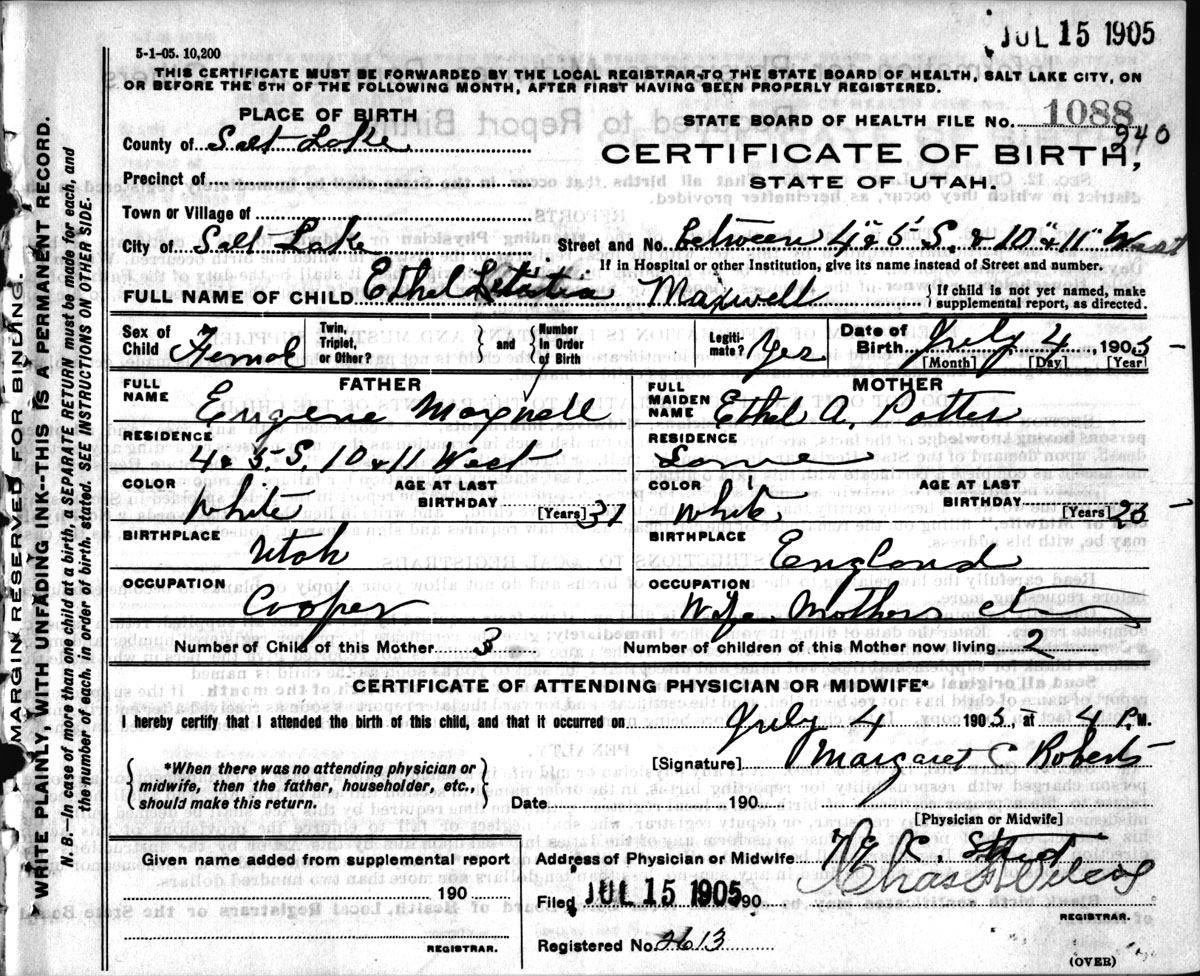 JUL 15 1905
5-1-05. 10,200
THIS CERTIFICATE MUST BE FORWARDED BY THE LOCAL REGISTRAR TO THE STATE BOARD OF HEALTH, SALT LAKE CITY, ON
OR BEFORE THE 5TH OF THE FOLLOWING MONTH, AFTER FIRST HAVING BEEN PROPERLY REGISTERED.
PLACE OF BIRTH
STATE BOARD OF HEALTH FILE NO. 1088
240
County of Salt Lake
CERTIFICATE OF BIRTH,
Precinct of
STATE OF UTAH.
Town or Village of
City of Salt Lake Street and No. between 4 & 5 S. & 10 & 11 West
If in Hospital or other Institution, give its name instead of Street and number.
FULL NAME OF CHILD Ethel Letitia Maxwell { If child is not yet named, make
supplemental report, as directed.
Sex of Child Female Twin, Triplet, or Other? } and { Number In Order of Birth Legitimate? Yes Date of Birth July 4, 1905
[Month] [Day] [Year]
FATHER MOTHER
FULL NAME Eugene Maxwell FULL MAIDEN NAME Ethel A. Potter
RESIDENCE 4 & 5 S. 10 & 11 West RESIDENCE Same
COLOR White AGE AT LAST BIRTHDAY [Years] 31 COLOR White AGE AT LAST BIRTHDAY [Years] 23
BIRTHPLACE Utah BIRTHPLACE England
OCCUPATION Cooper OCCUPATION Wife Mother
Number of Child of this Mother 3 Number of children of this Mother now living 2
CERTIFICATE OF ATTENDING PHYSICIAN OR MIDWIFE*
I hereby certify that I attended the birth of this child, and that it occurred on July 4 1905, at 4 P.M.
{ *When there was no attending physician or
midwife, then the father, householder, etc.,
should make this return. }
[Signature] Margaret C Roberts
Date 190
[Physician or Midwife]
Given name added from supplemental report
190
REGISTRAR.
Address of Physician or Midwife
Filed JUL 15 1905 190
REGISTRAR.
Registered No. 2613
(OVER)
MARGIN RESERVED FOR BINDING.
WRITE PLAINLY, WITH UNFADING INK--THIS IS A PERMANENT RECORD.
N. B.—In case of more than one child at a birth, a SEPARATE RETURN must be made for each, and
the number of each, in order of birth, stated. SEE INSTRUCTIONS ON OTHER SIDE.